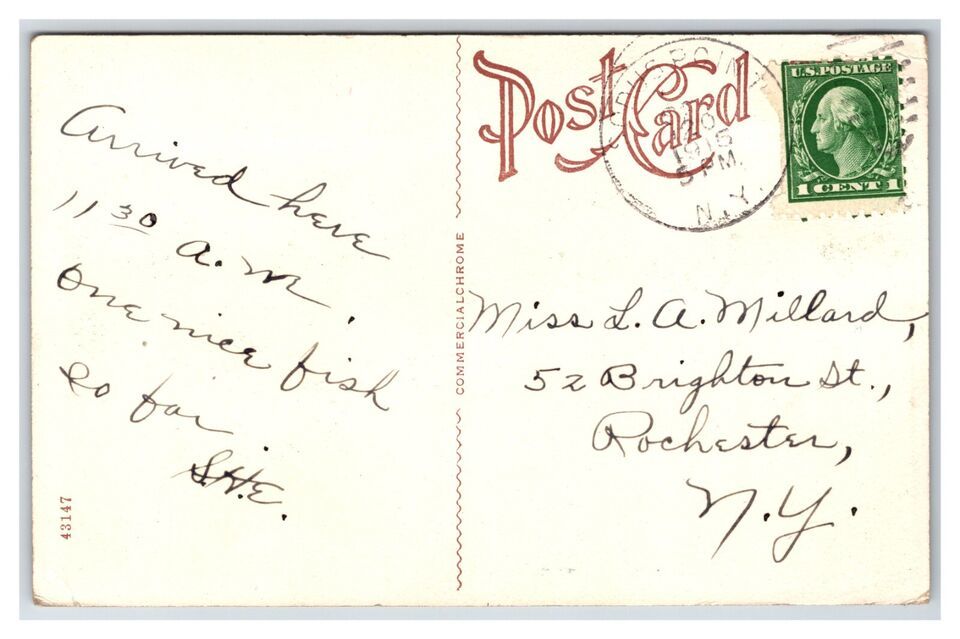 Arrived here
11 30 A. M.
One nice fish
so far
S.H.E.
43147
COMMERCIALCHROME
Post Card
POINT
20
1915
5 PM.
N.Y.
U.S. POSTAGE
1 CENT 1
Miss L. A. Millard,
52 Brighton St.,
Rochester,
N.Y.